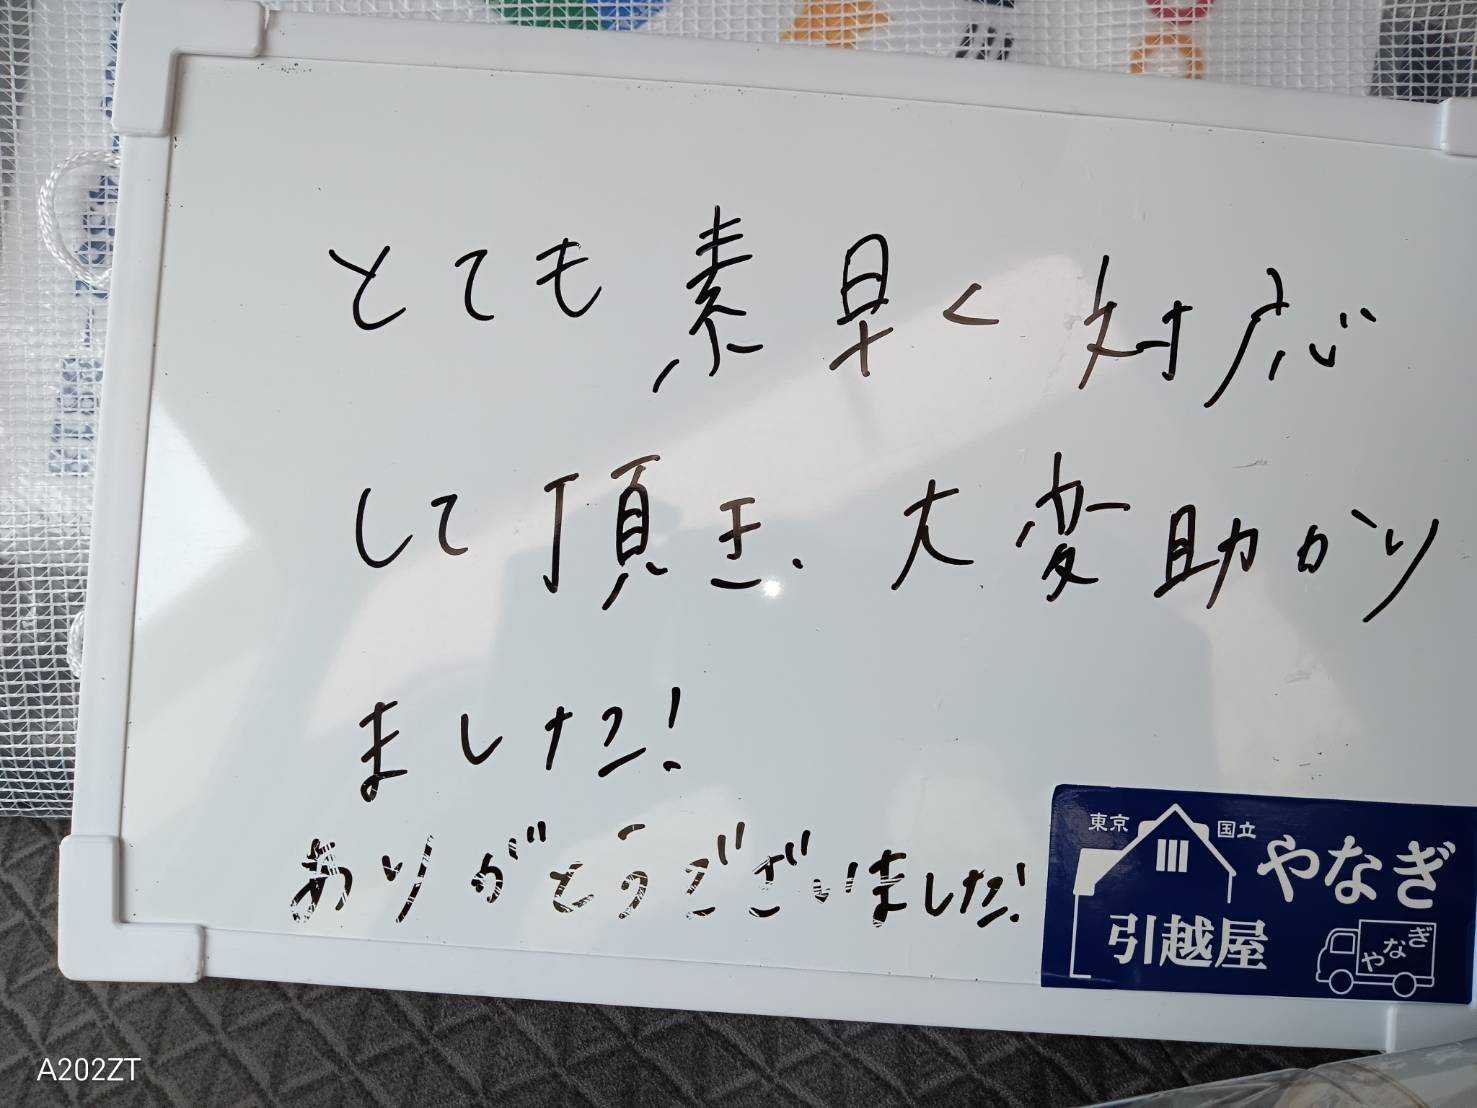 とても素早く対応
して頂き、大変助かり
ました!
ありがとうございました!
東京 国立
やなぎ
引越屋
やなぎ
A202ZT